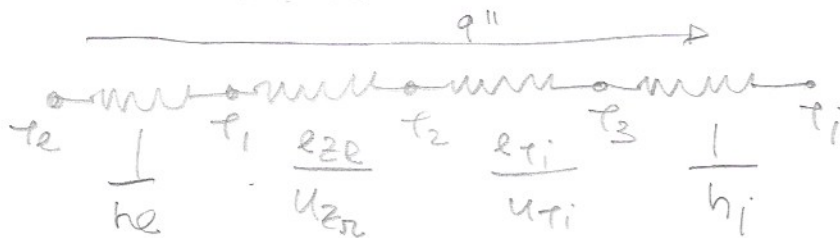 q"
Te T1 T2 T3 Ti
1/he eZr/kZr eTi/kTi 1/hi